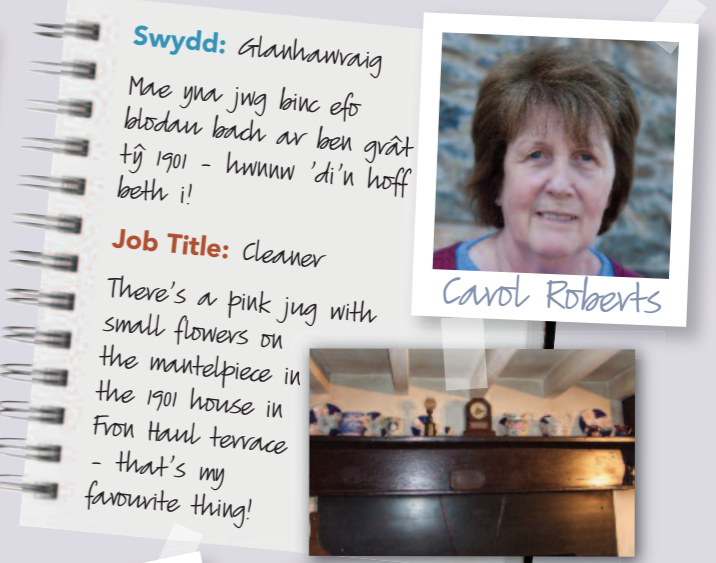 Swydd: Glanhawraig
Mae yna jwg binc efo
blodau bach ar ben grât
tŷ 1901 - hwnnw 'di'n hoff
beth i!
Job Title: Cleaner
There's a pink jug with
small flowers on
the mantelpiece in
the 1901 house in
Fron Haul terrace
- that's my
favourite thing!
Carol Roberts